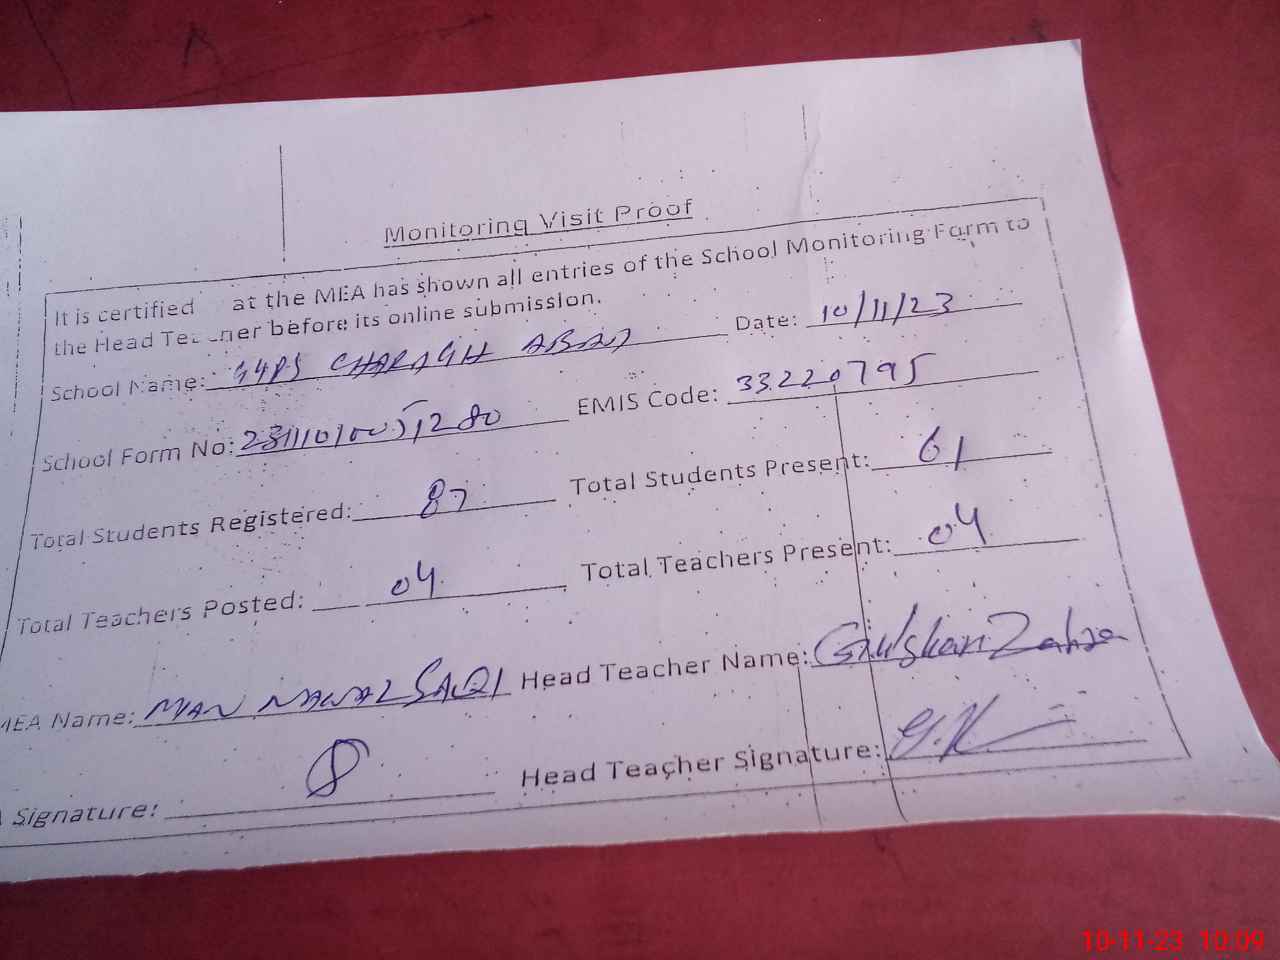 Monitoring Visit Proof
It is certified at the MEA has shown all entries of the School Monitoring Form to
the Head Te ner before its online submission.
School Name: CHARAGH ABAD Date: 10/11/23
School Form No: EMIS Code: 33220795
Total Students Registered: 87 Total Students Present: 61
Total Teachers Posted: 04 Total Teachers Present: 04
MEA Name: NAWAZ SAQI Head Teacher Name: Gulshan Zahra
Signature: Head Teacher Signature:
10-11-23 10:09